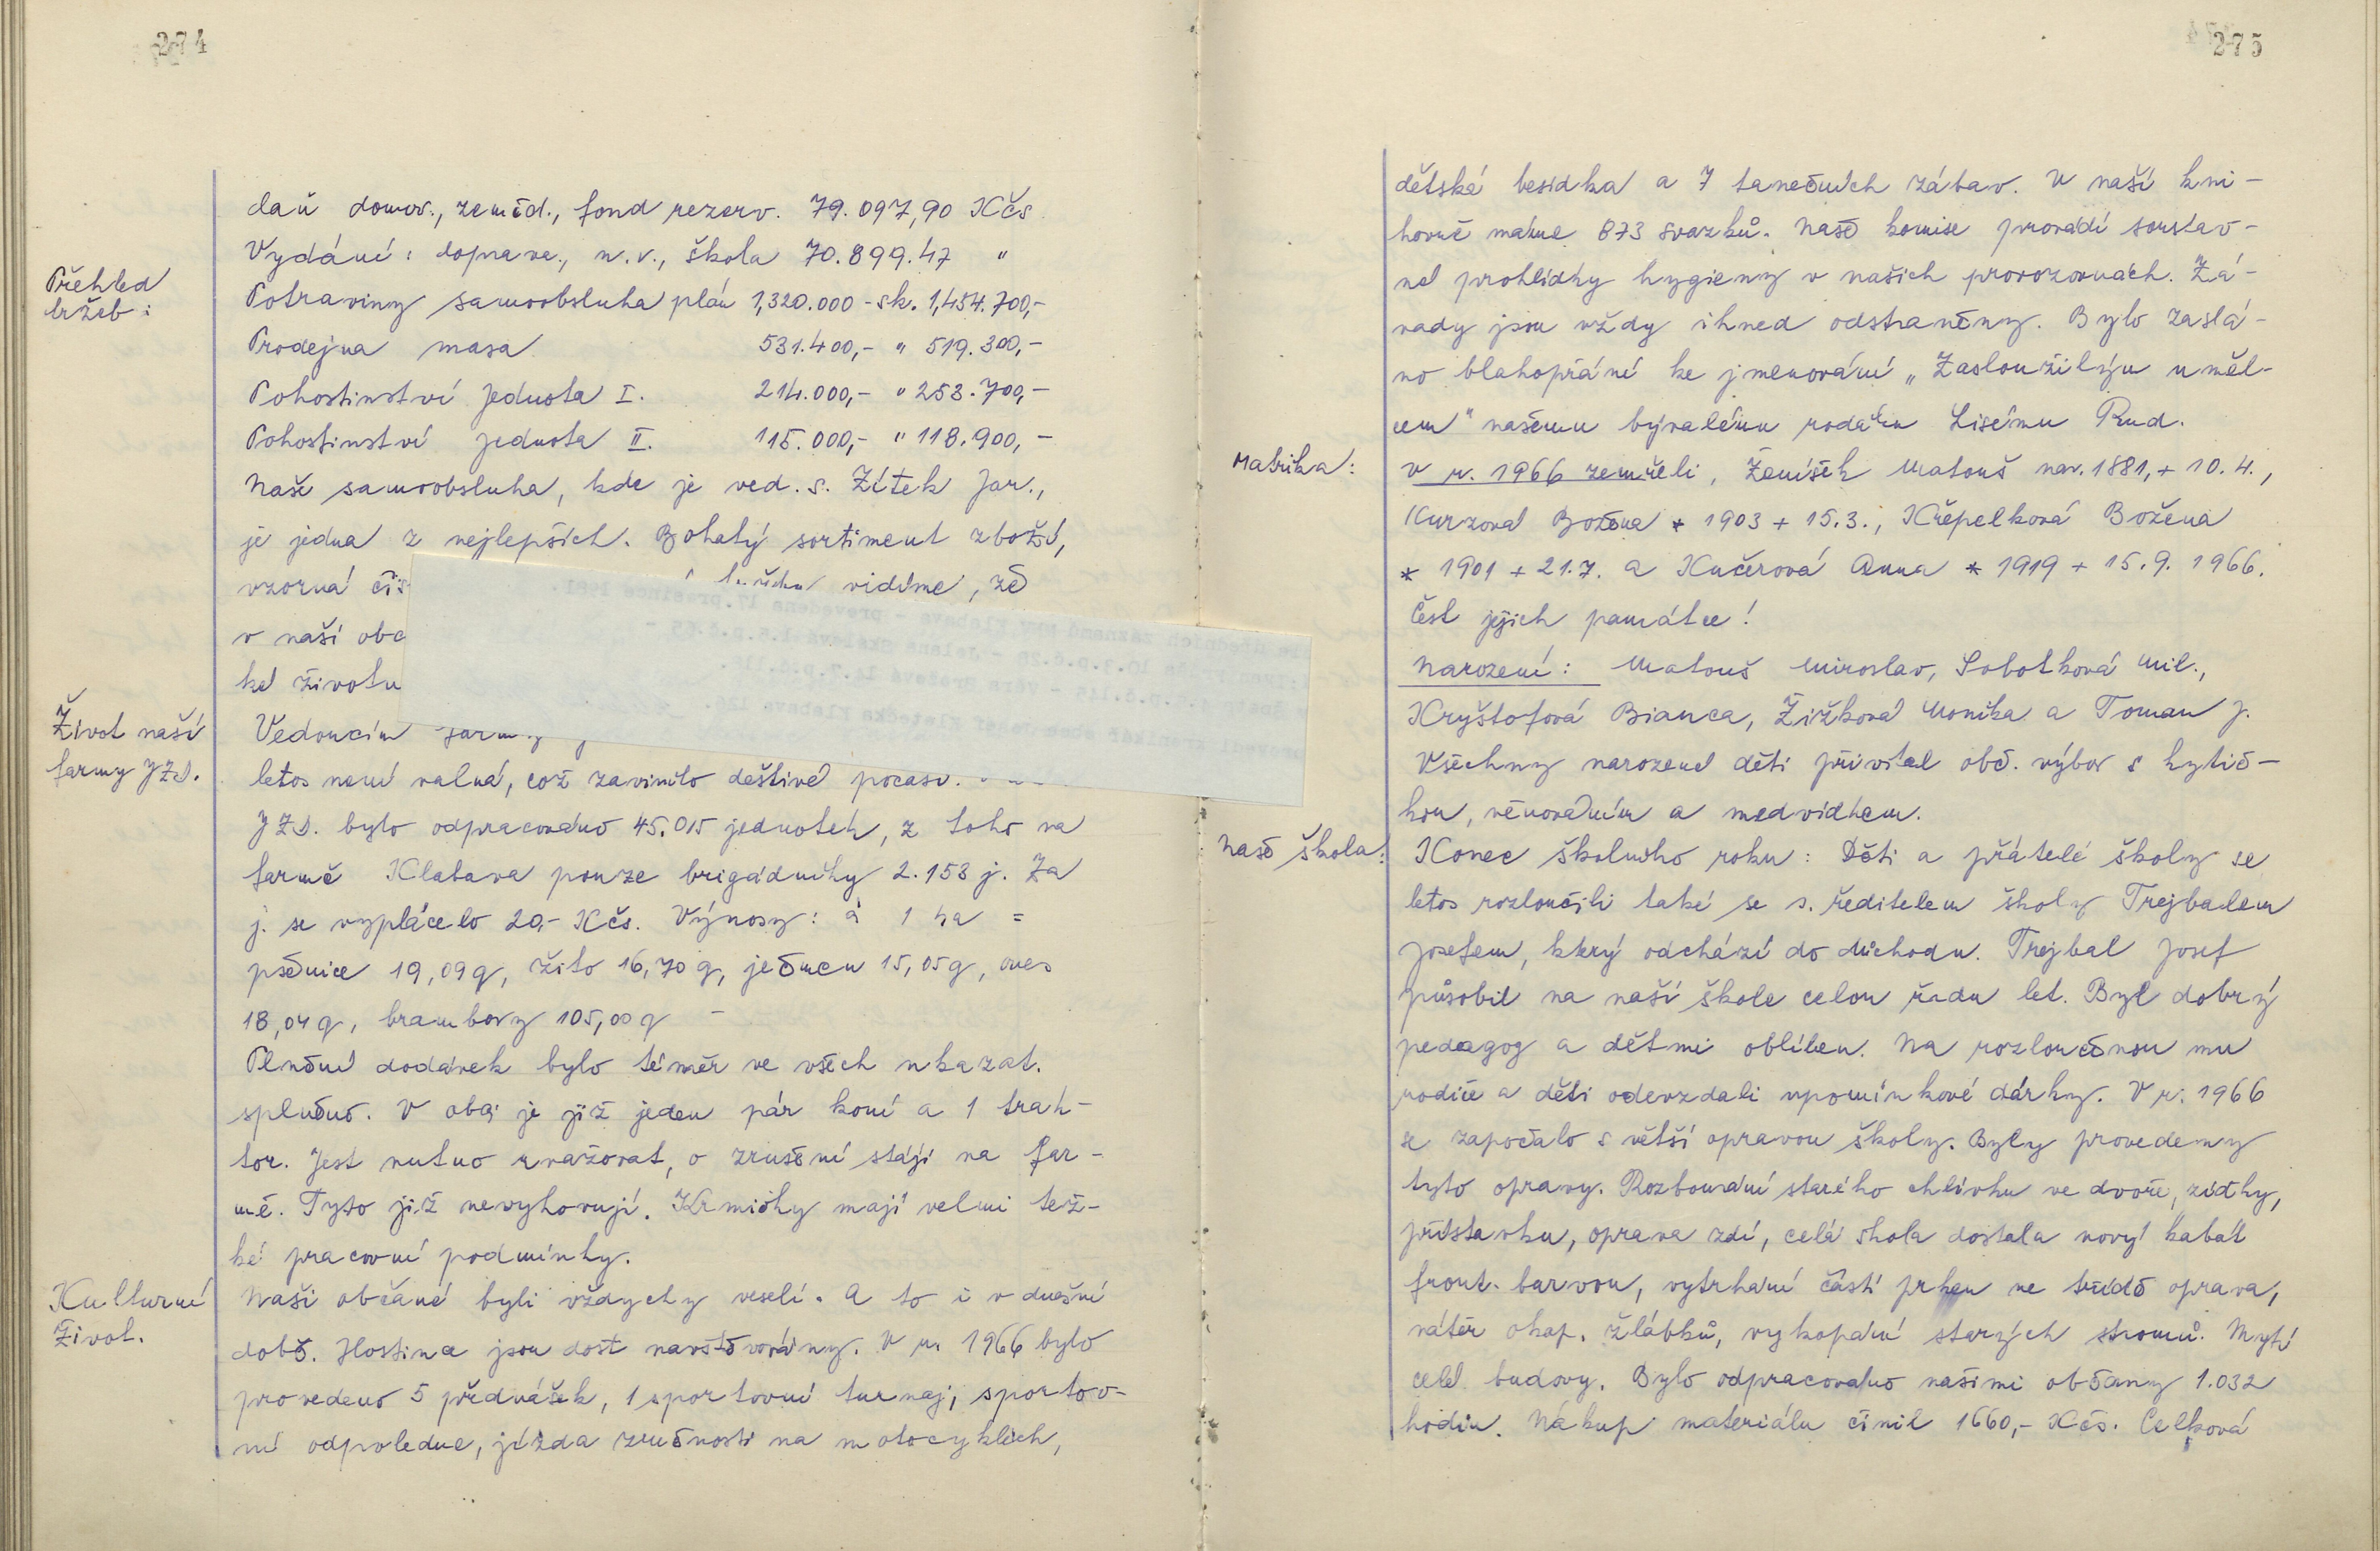 274
daň domov., zeměd., fond rezerv. 79.097,90 Kčs
Vydání: doprava, n.v., škola 70.899.47 "
Přehled
tržeb:
Potraviny samoobsluha plán 1,320.000 - sk. 1,454.700,-
Prodejna masa 531.400,- " 519.300,-
Pohostinství Jednota I. 214.000,- " 253.700,-
Pohostinství Jednota II. 115.000,- " 118.900,-
Naše samoobsluha, kde je ved. s. Žítek Jar.,
je jedna z nejlepších. Bohatý sortiment zboží,
vzorná čis vidíme, že
v naší obc
ke životu
Život naší
farmy JZD.
Vedoucím farmy
letos není valná, což zavinilo deštivé počasí.
JZD. bylo odpracováno 45.015 jednotek, z toho na
farmě Klabava pouze brigádníky 2.153 j. Za
j. se vyplácelo 20,- Kčs. Výnosy: á 1 ha =
pšenice 19,09 q, žito 16,70 q, ječmen 15,05 q, oves
18,04 q, brambory 105,00 q -
Plnění dodávek bylo téměř ve všech ukazat.
splněno. V obci je již jeden pár koní a 1 trak-
tor. Jest nutno uvažovat, o zrušení stájí na far-
mě. Tyto již nevyhovují. Krmičky mají velmi těž-
ké pracovní podmínky.
Kulturní
život.
Naši občané byli vždycky veselí. A to i v dnešní
době. Hostince jsou dost navštěvovány. V r. 1966 bylo
provedeno 5 přednášek, 1 sportovní turnaj, sportov-
ní odpoledne, jízda zručnosti na motocyklech,
275
dětská besídka a 7 tanečních zábav. V naší kni-
hovně máme 873 svazků. Naše komise provádí soustav-
né prohlídky hygieny v našich provozovnách. Zá-
vady jsou vždy ihned odstraněny. Bylo zaslá-
no blahopřání ke jmenování „Zasloužilým uměl-
cem" našemu bývalému rodáku Lisému Rud.
Matrika:
V r. 1966 zemřeli, Žemíšek Matouš nar. 1881, + 10.4.,
Kurzová Božena * 1903 + 15.3., Křepelková Božena
* 1901 + 21.7. a Kučerová Anna * 1919 + 15.9. 1966.
Čest jejich památce!
Narození: Matouš Miroslav, Sobotková Mil.,
Kryštofová Bianca, Žižková Monika a Toman J.
Všechny narozené děti přivítal obč. výbor s kytič-
kou, věnováním a medvídkem.
Naše škola:
Konec školního roku: Děti a přátelé školy se
letos rozloučili také se s. ředitelem školy Trejbalem
Josefem, který odchází do důchodu. Trejbal Josef
působil na naší škole celou řadu let. Byl dobrý
pedagog a dětmi oblíben. Na rozloučenou mu
rodiče a děti odevzdali upomínkové dárky. V r. 1966
se započalo s větší opravou školy. Byly provedeny
tyto opravy. Rozbourání starého chlívku ve dvoře, zídky,
přístavku, oprava zdí, celá škola dostala nový kabát
front. barvou, vytrhání části prken ve třídě oprava,
nátěr okap. žlábků, vykopání starých stromů. Mytí
celé budovy. Bylo odpracováno našimi občany 1.032
hodin. Nákup materiálu činil 1660,- Kčs. Celková